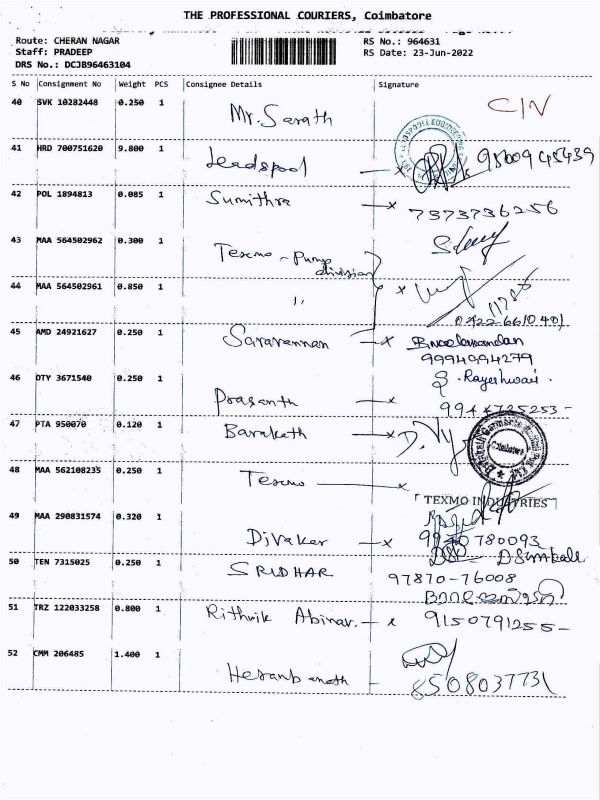 THE PROFESSIONAL COURIERS, Coimbatore
Route: CHERAN NAGAR RS No.: 964631
Staff: PRADEEP RS Date: 23-Jun-2022
DRS No.: DCJB96463104
S No Consignment No Weight PCS Consignee Details Signature
40 SVK 10282448 0.250 1 Mr. Sarath
41 HRD 700751620 9.800 1 Leadspool
42 POL 1894813 0.085 1 Sumithra 7373736256
43 MAA 564502962 0.300 1 Texmo - Pump
division
44 MAA 564502961 0.850 1 "
45 AMD 24921627 0.250 1 Saravannan
9994094279
46 DTY 3671540 0.250 1 Prasanth
47 PTA 950070 0.120 1 Barakath
48 MAA 562108235 0.250 1 Texmo
TEXMO INDUSTRIES
49 MAA 290831574 0.320 1 Divakar
50 TEN 7315025 0.250 1 SRIDHAR 97870-76008
51 TRZ 122033258 0.800 1 Rithvik Abinav. 9150791255
52 CMM 206485 1.400 1 8508037731